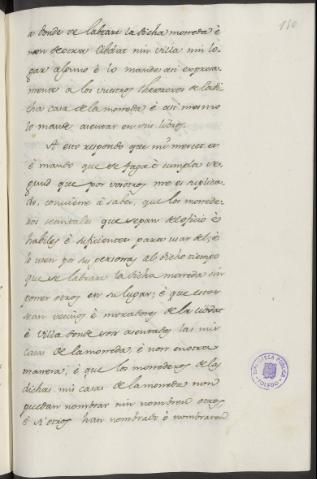 150
a donde se labrare la dicha moneda é
non de otra cibdat nin villa nin lo
gar alguno é lo mande asi expresa
mente a los vuestros thesoreros de la di
cha casa de la moneda é asi mesmo
lo mande asentar en mis libros.
A esto respondo que mi merced es
é mando que se faga é cumpla se
gund que por vosotros me es suplica
do, conviene á saber, que los monede
ros sentados que sepan del oficio é
habiles é suficientes para usar del, é
lo usen por sus personas al dicho tiempo
que se labrare la dicha moneda sin
poner otros en su lugar; é que estos
sean vecinos é moradores de la cibdat
é villa donde son asentadas las mis
casas de la moneda, é non en otra
manera, é que los monederos de las
dichas mis casas de la moneda non
puedan nombrar nin nombren otros
é si otros han nombrado é nombraren
BIBLIOTECA PUBLICA
TOLEDO